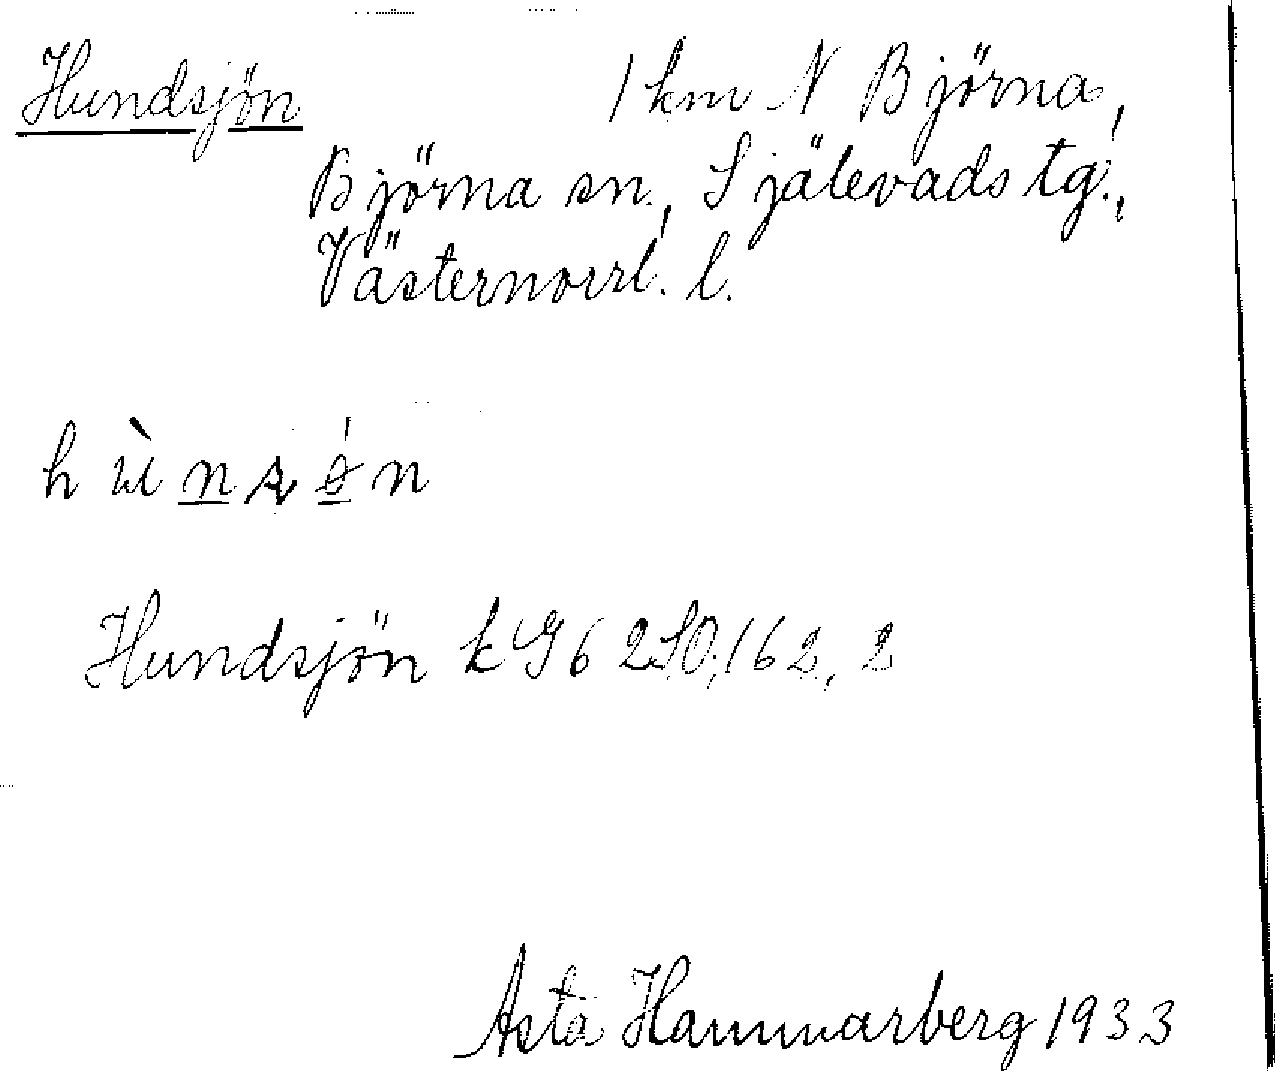 Hundsjön 1 km N Björna,
Björna sn., Själevads tg.,
Västernorrl. l.
Hundsjön k G6 2SO, 162, 2
Asta Hammarberg 1933